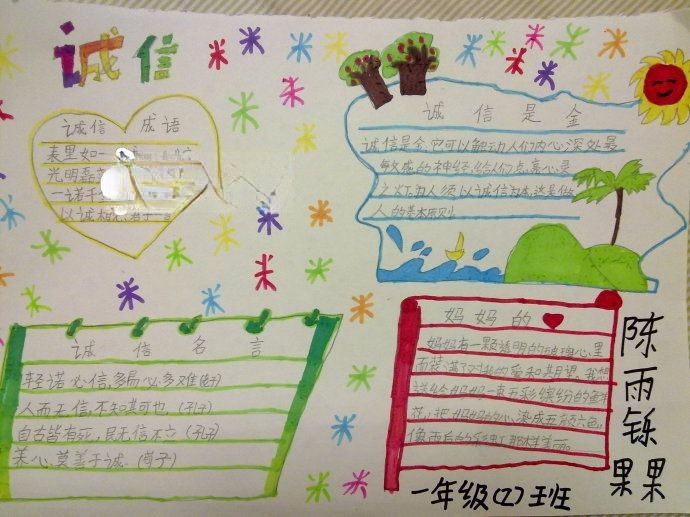 诚信
诚信 成语
表里如一
光明磊
一诺千
以诚相
诚信是金
诚信是金,它可以触动人们内心深处最
敏感的神经,给人们点亮心灵
之灯,为人须以诚信为本,这是做
人的基本原则
诚信名言
轻诺必信,多易必多难(老子)
人而无信,不知其可也(孔子)
自古皆有死,民无信不立(孔子)
养心莫善于诚(荀子)
妈妈的
妈妈有一颗透明的玻璃心,里
面装满了对我的爱和期望。我想
送给妈妈一束五彩缤纷的鲜
花,把妈妈的心染成五颜六色,
像雨后的彩虹那样美丽。
陈雨铄
果果
一年级(2)班